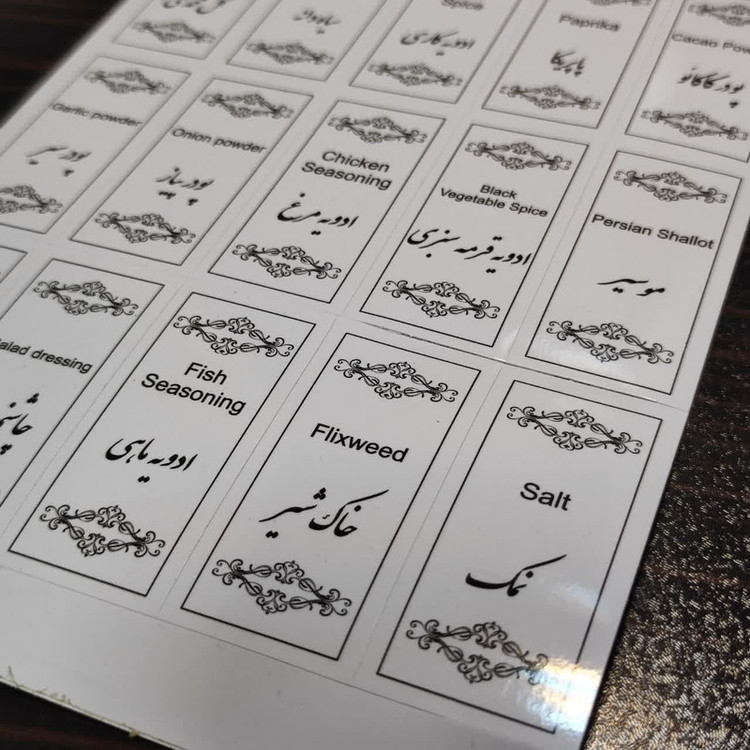 Spice
ادویه کاری
Paprika
پاپریکا
Cacao
پودر کاکائو
Garlic powder
پودر سیر
Onion powder
پودر پیاز
Chicken
Seasoning
ادویه مرغ
Black
Vegetable Spice
ادویه قرمه سبزی
Persian Shallot
موسیر
alad dressing
Fish
Seasoning
ادویه ماهی
Flixweed
خاک شیر
Salt
نمک